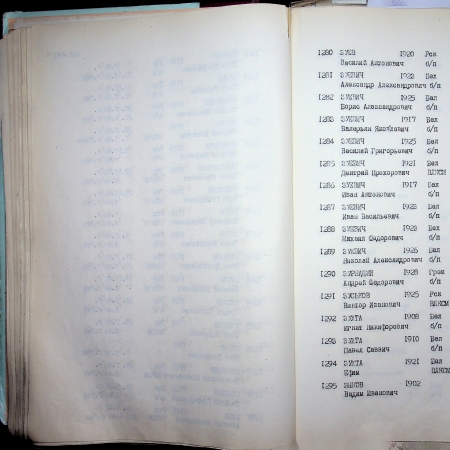 1280 ЗУЕВ 1920 Рск
Василий Антонович б/п
1281 ЗУЕВИЧ 1923 Бел
Александр Александрович б/п
1282 ЗУЕВИЧ 1925 Бел
Борис Александрович б/п
1283 ЗУЕВИЧ 1917 Бел
Валерьян Яковлевич б/п
1284 ЗУЕВИЧ 1925 Бел
Василий Григорьевич б/п
1285 ЗУЕВИЧ 1921 Бел
Дмитрий Прохорович ВЛКСМ
1286 ЗУЕВИЧ 1917 Бел
Иван Антонович б/п
1287 ЗУЕВИЧ 1923 Бел
Иван Васильевич б/п
1288 ЗУЕВИЧ 1923 Бел
Михаил Федорович б/п
1289 ЗУЕВИЧ 1926 Бел
Николай Александрович б/п
1290 1928
Андрей Федорович б/п
1291 ЗУСЬКОВ 1925 Рск
Виктор Иванович ВЛКСМ
1292 ЗУХТА 1908 Бел
Игнат Никифорович б/п
1293 ЗУХТА 1910 Бел
Павел Саввич б/п
1294 ЗУХТА 1921 Бел
Ефим ВЛКСМ
1295 ЗЫКОВ 1902
Вадим Иванович